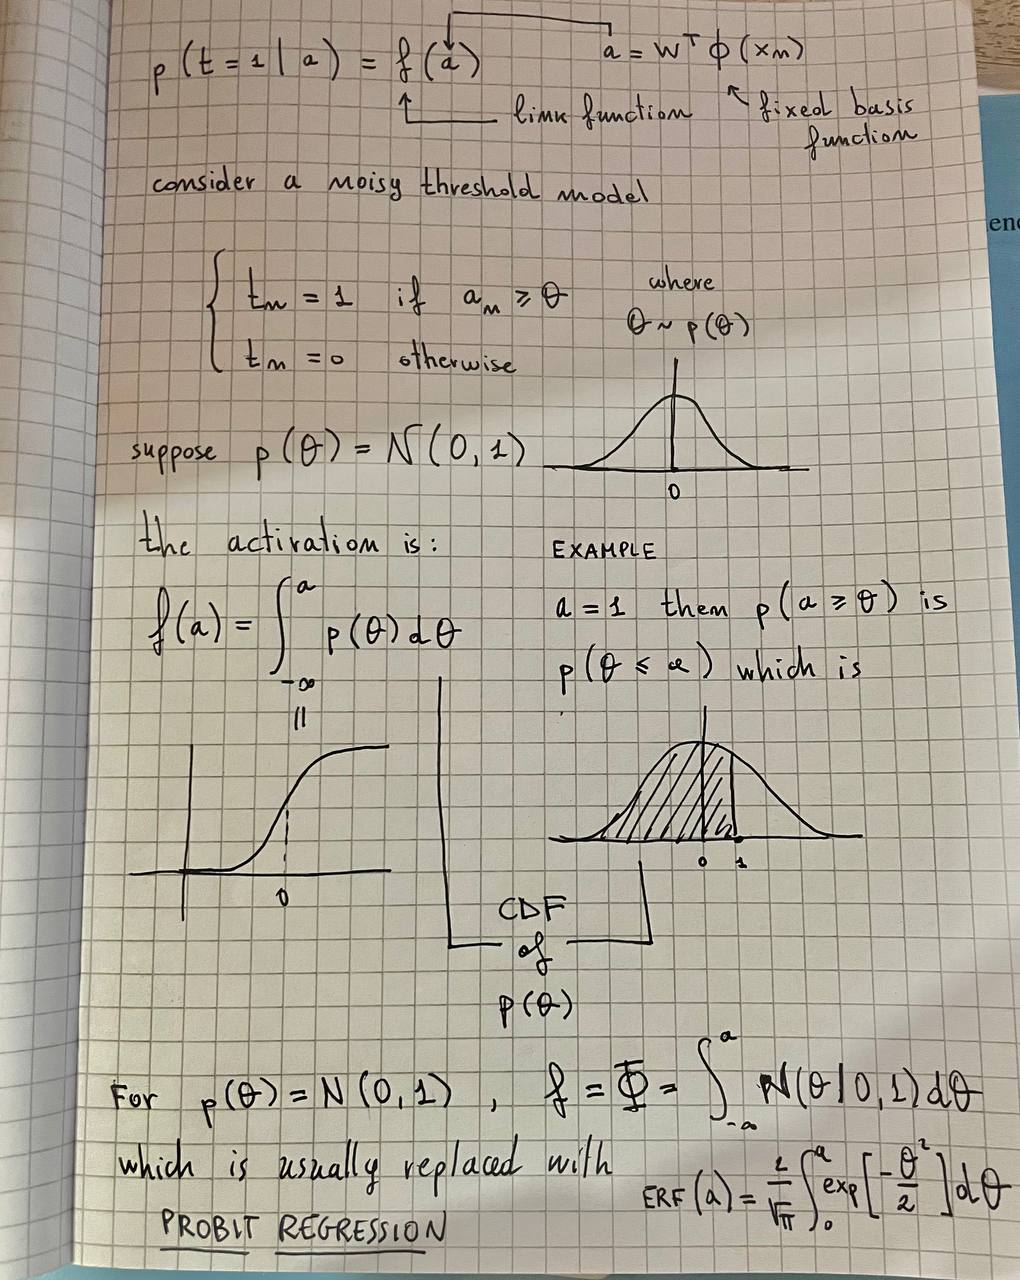 p(t = 1 | a) = f(a) a = wᵀ ϕ(xₙ)
link function fixed basis
function
consider a noisy threshold model
tₙ = 1 if aₙ ⩾ θ where
θ ~ p(θ)
tₙ = 0 otherwise
suppose p(θ) = N(0, 1)
0
the activation is: EXAMPLE
f(a) = ∫_{-∞}^{a} p(θ) dθ
a = 1 then p(a ⩾ θ) is
p(θ ⩽ a) which is
||
0
0 1
CDF
of
p(θ)
For p(θ) = N(0, 1), f = Φ = ∫_{-∞}^{a} N(θ|0, 1) dθ
which is usually replaced with ERF(a) = 2/√π ∫_{0}^{a} exp[-θ²/2] dθ
PROBIT REGRESSION